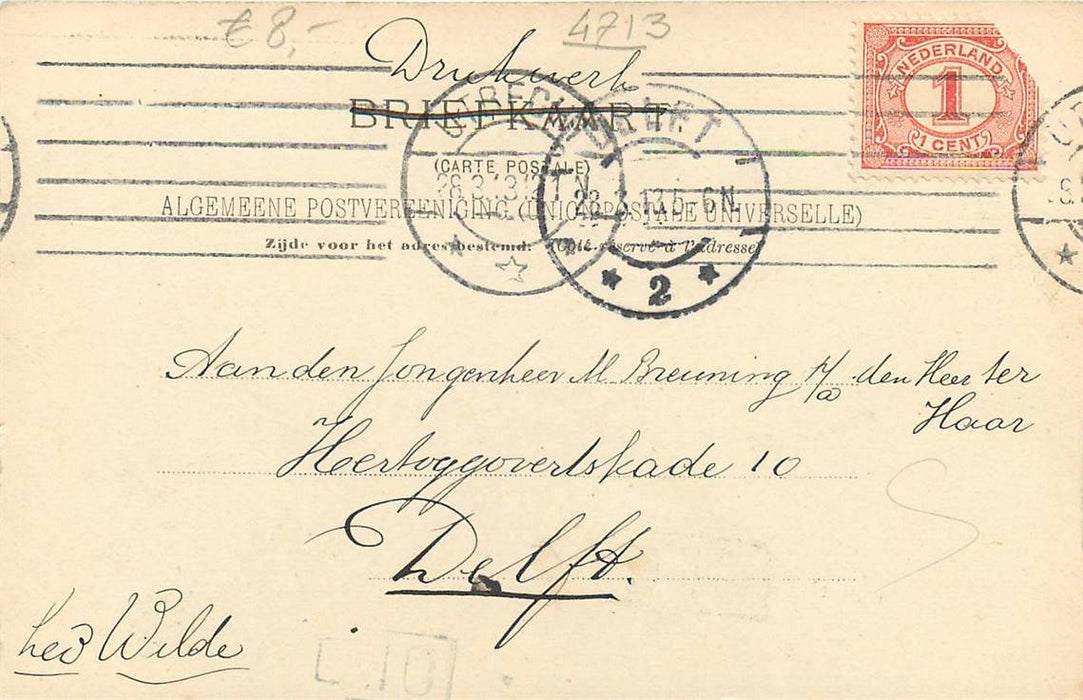 € 8,-
4713
Drukwerk
BRIEFKAART
(CARTE POSTALE)
ALGEMEENE POSTVEREENIGING (UNION POSTALE UNIVERSELLE)
Zijde voor het adres bestemd. (Côté réservé à l'adresse)
NEDERLAND
1
1 CENT
UTRECHT
28.3.13. 1 N
DELFT
28.3.13.5-6N
2
Aan den Jongenheer M Breuning p/a den Heer ter
Haar
Hertoggovertskade 10
Delft.
Wilde